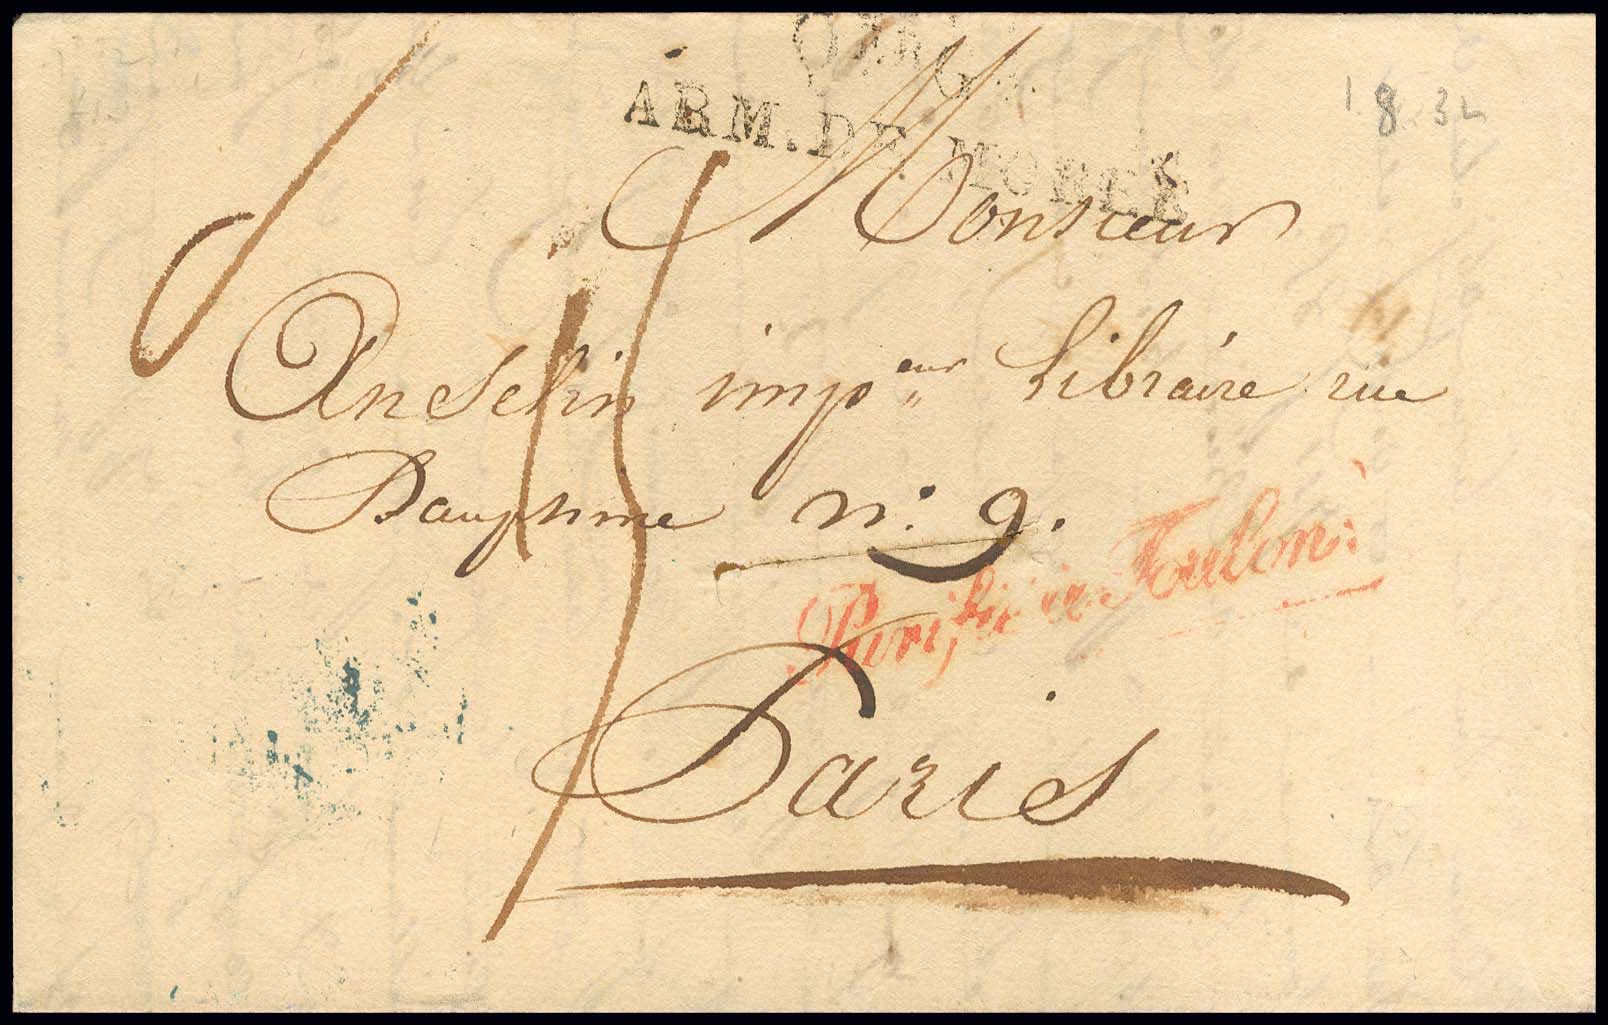 ARM. DE MORÉE
1832
Monsieur
Anselin imp.eur Libraire rue
Dauphine n.º 9.
Purifié à Toulon.
Paris
15